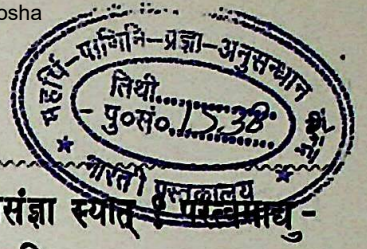 osha
महर्षि-पाणिनि-प्रज्ञा-अनुसन्धान
तिथी..........
पु०सं०.1538
भारती पुस्तकालय
संज्ञा स्यात् ।